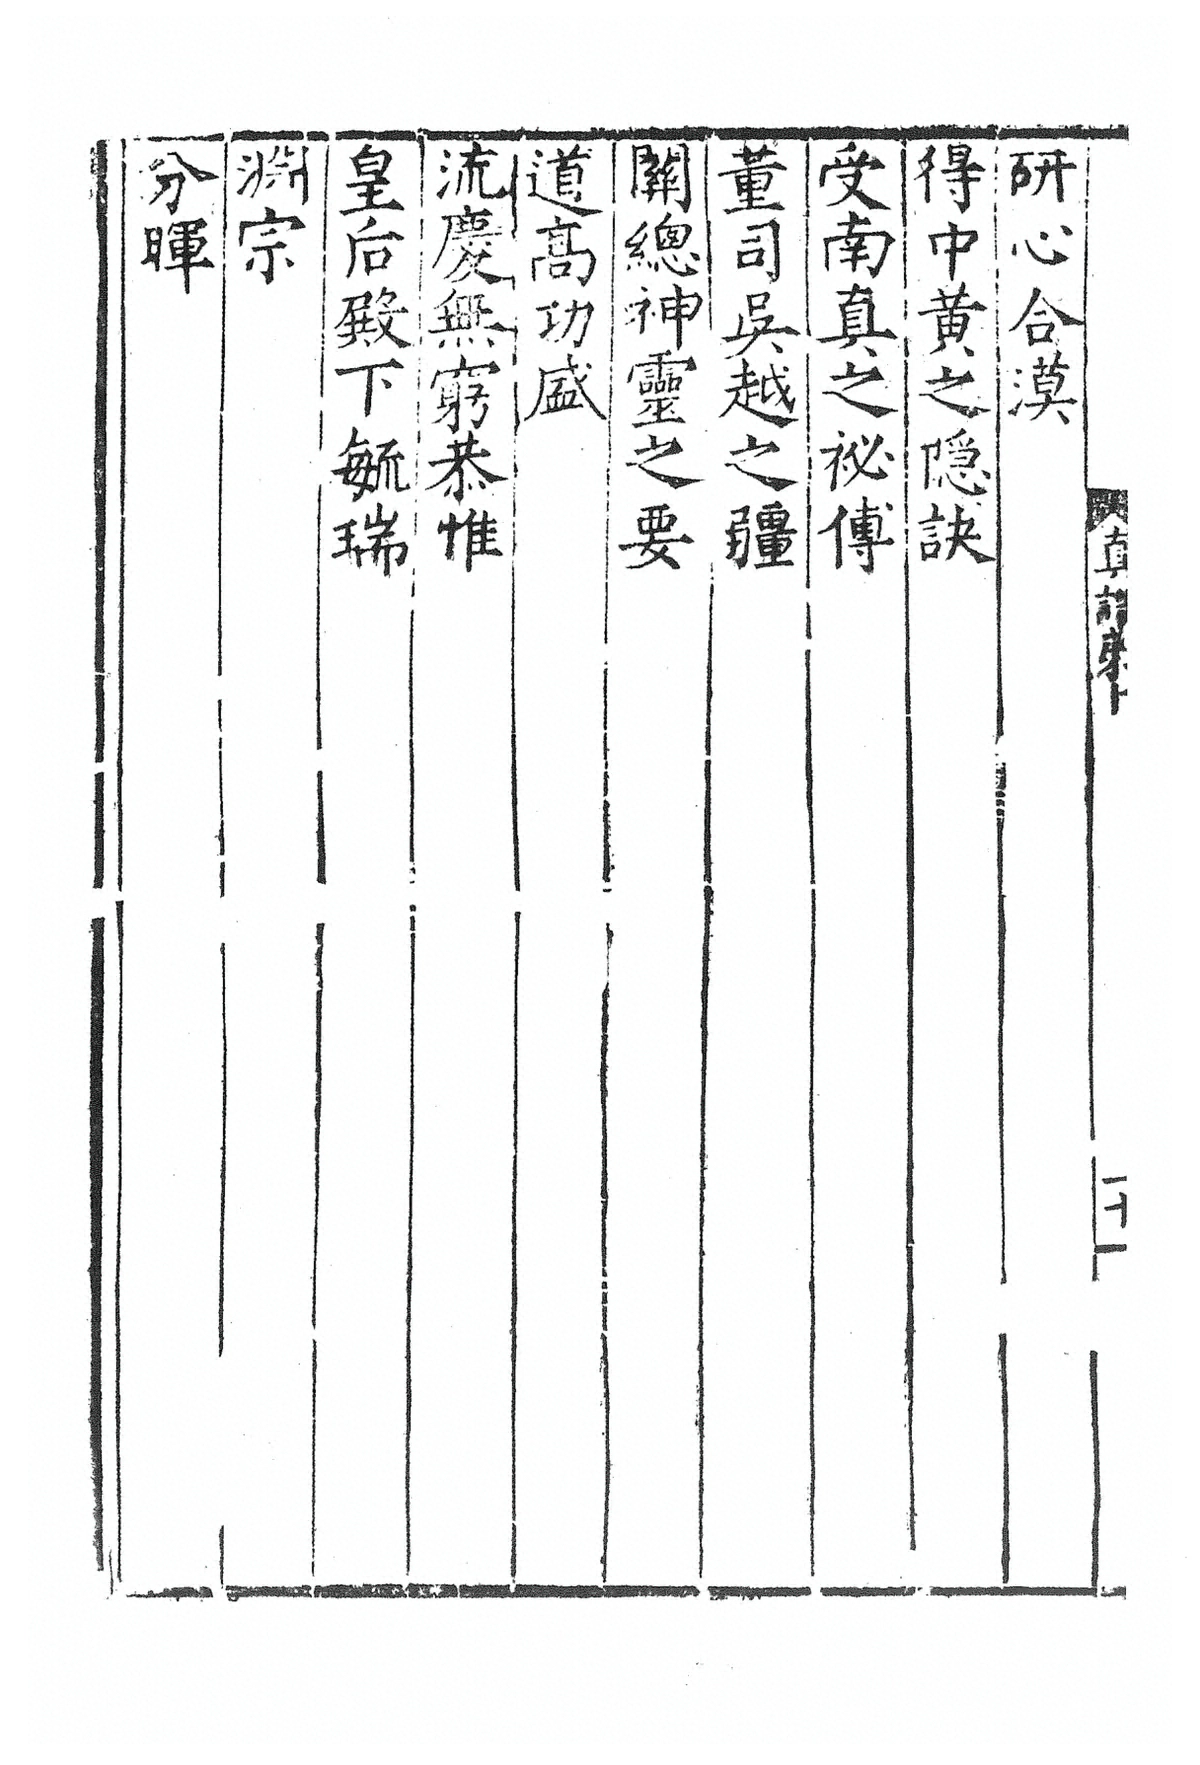 真誥
十一
研心合漠
得中黄之隠訣
受南真之祕傳
董司吳越之疆
關總神靈之要
道髙功盛
流慶無窮恭惟
皇后殿下毓瑞
淵宗
分暉